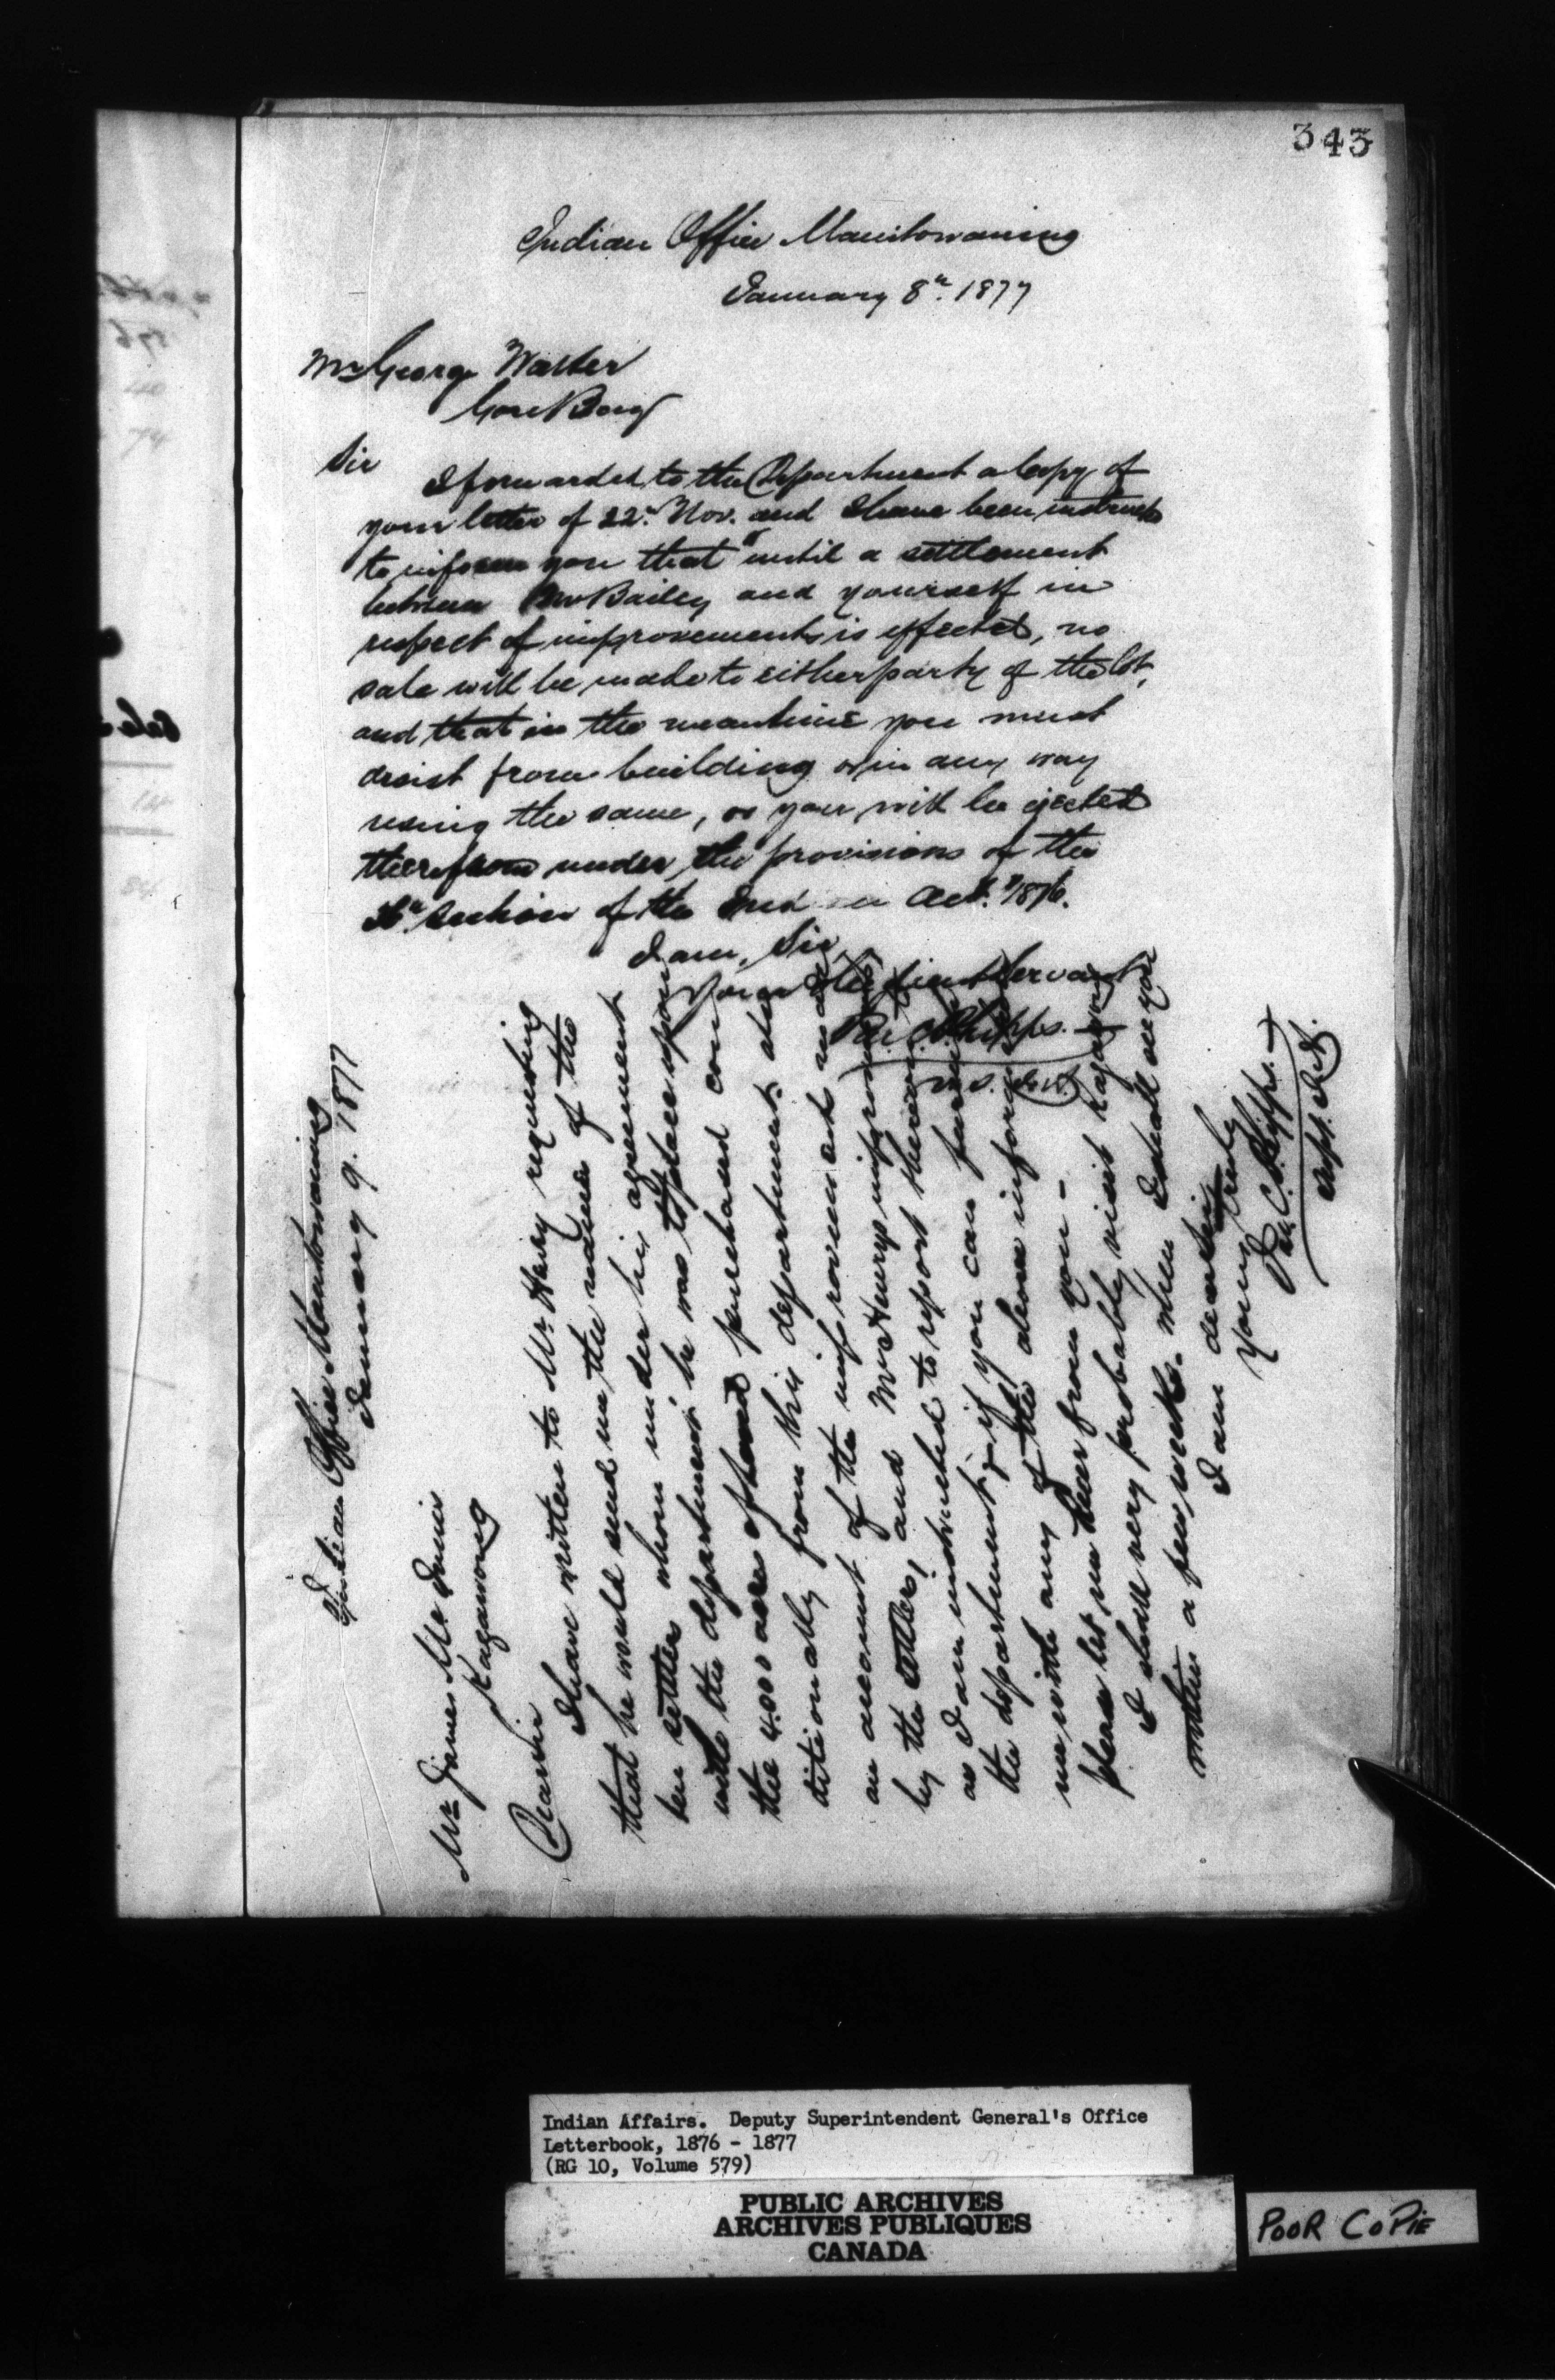 343
Indian Office Manitowaning
January 8th. 1877
Mr George Walker
Gore Bay
Sir
I forwarded to the Department a Copy of
your letter of 22nd Nov. and I have been instructed
to inform you that until a settlement
between Mr Bailey and yourself in
respect of improvements is effected, no
sale will be made to either party of the lot,
and that in the meantime you must
desist from building or in any way
using the same, or you will be ejected
therefrom under the provisions of the
Section of the Indian Act. 1876.
I am, Sir,
Your Obedient Servant
J.C. Phipps.
V.S.
Indian Office Manitowaning
January 9. 1877
Mr James
Kagawong
Dear Sir
I have written to Mr Henry requesting
that he would send me the names of the
ten settlers whom under his agreement
with the department he was to place upon
the 4000 acres of land purchased con
ditionally from this department. also
an account of the improvements made
by the settlers, and Mr Henrys improvements,
as I am instructed to report thereon to
the department, & if you can furnish
me with any of the above information
please let me hear from you -
I shall very probably visit Kagawong
within a few weeks. when I shall see you
I am dear Sir
Yours truly
J.C. Phipps.
Supt.
Indian Affairs. Deputy Superintendent General's Office
Letterbook, 1876 - 1877
(RG 10, Volume 579)
PUBLIC ARCHIVES
ARCHIVES PUBLIQUES
CANADA
POOR COPIE